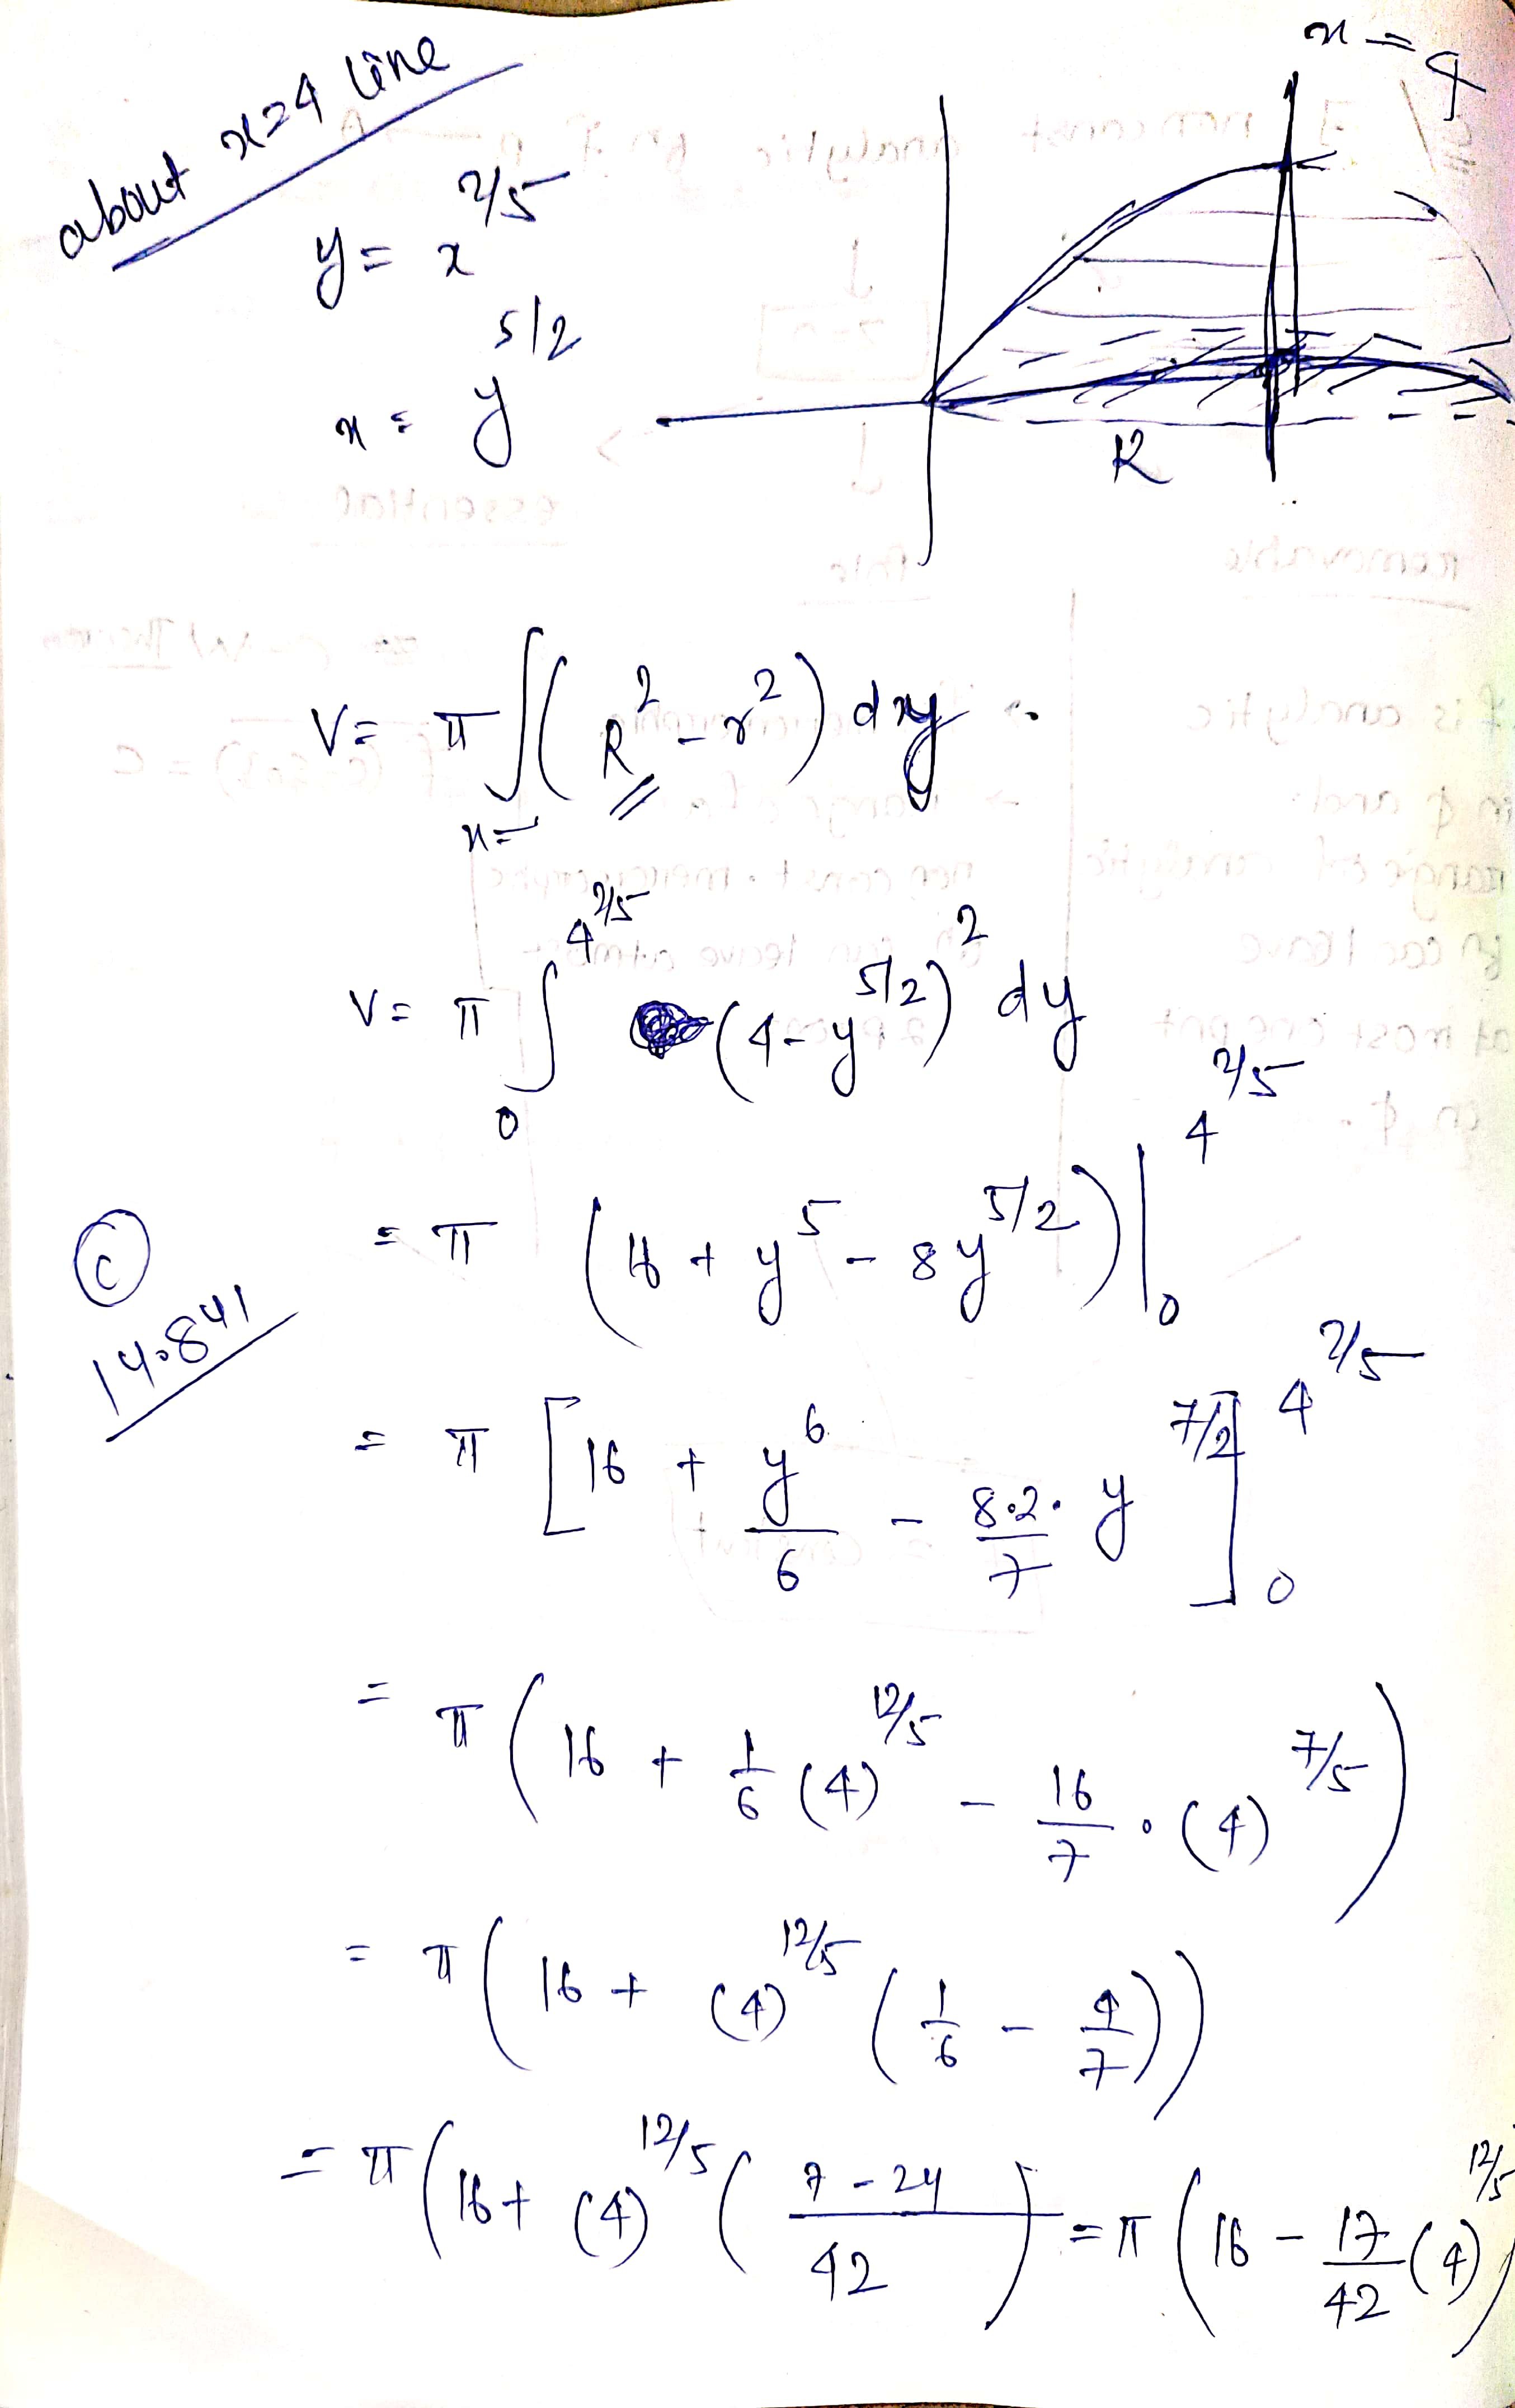 about x=4 line
x = 4
y = x^{2/5}
x = y^{5/2}
R
V = π ∫_{x=} (R^2 - r^2) dy
V = π ∫_0^{4^{2/5}} (4 - y^{5/2})^2 dy
= π (16 + y^5 - 8y^{5/2}) |_0^{4^{2/5}}
(C)
14.841
= π [16 + y^6/6 - 8·2·/7 y^{7/2}]_0^{4^{2/5}}
= π (16 + 1/6 (4)^{12/5} - 16/7 · (4)^{7/5})
= π (16 + (4)^{12/5} (1/6 - 4/7))
= π (16 + (4)^{12/5} (7 - 24 / 42) = π (16 - 17/42 (4)^{12/5})